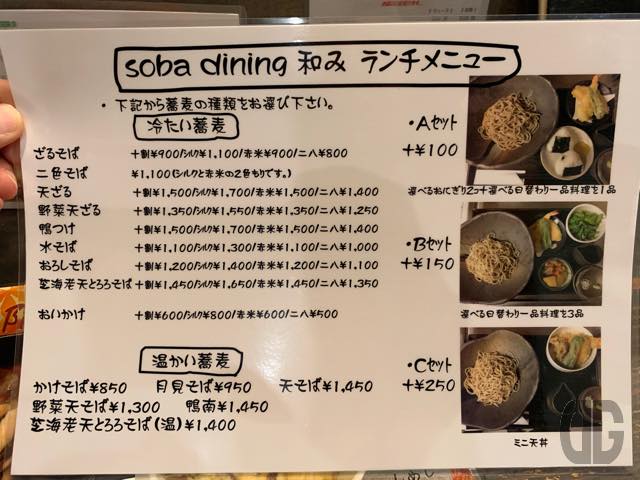 soba dining 和み ランチメニュー
・下記から蕎麦の種類をお選び下さい。
冷たい蕎麦
ざるそば 十割¥900/シルク¥1,100/赤米¥900/二八¥800
二色そば ¥1,100(シルクと赤米の2色もりです。)
天ざる 十割¥1,500/シルク¥1,700/赤米¥1,500/二八¥1,400
野菜天ざる 十割¥1,350/シルク¥1,550/赤米¥1,350/二八¥1,250
鴨つけ 十割¥1,500/シルク¥1,700/赤米¥1,500/二八¥1,400
水そば 十割¥1,100/シルク¥1,300/赤米¥1,100/二八¥1,000
おろしそば 十割¥1,200/シルク¥1,400/赤米¥1,200/二八¥1,100
芝海老天とろろそば 十割¥1,450/シルク¥1,650/赤米¥1,450/二八¥1,350
おいかけ 十割¥600/シルク¥800/赤米¥600/二八¥500
温かい蕎麦
かけそば¥850 月見そば¥950 天そば¥1,450
野菜天そば¥1,300 鴨南¥1,450
芝海老天とろろそば(温)¥1,400
・Aセット
+¥100
選べるおにぎり2コ+選べる日替わり一品料理を1品
・Bセット
+¥150
選べる日替わり一品料理を3品
・Cセット
+¥250
ミニ天丼
DG